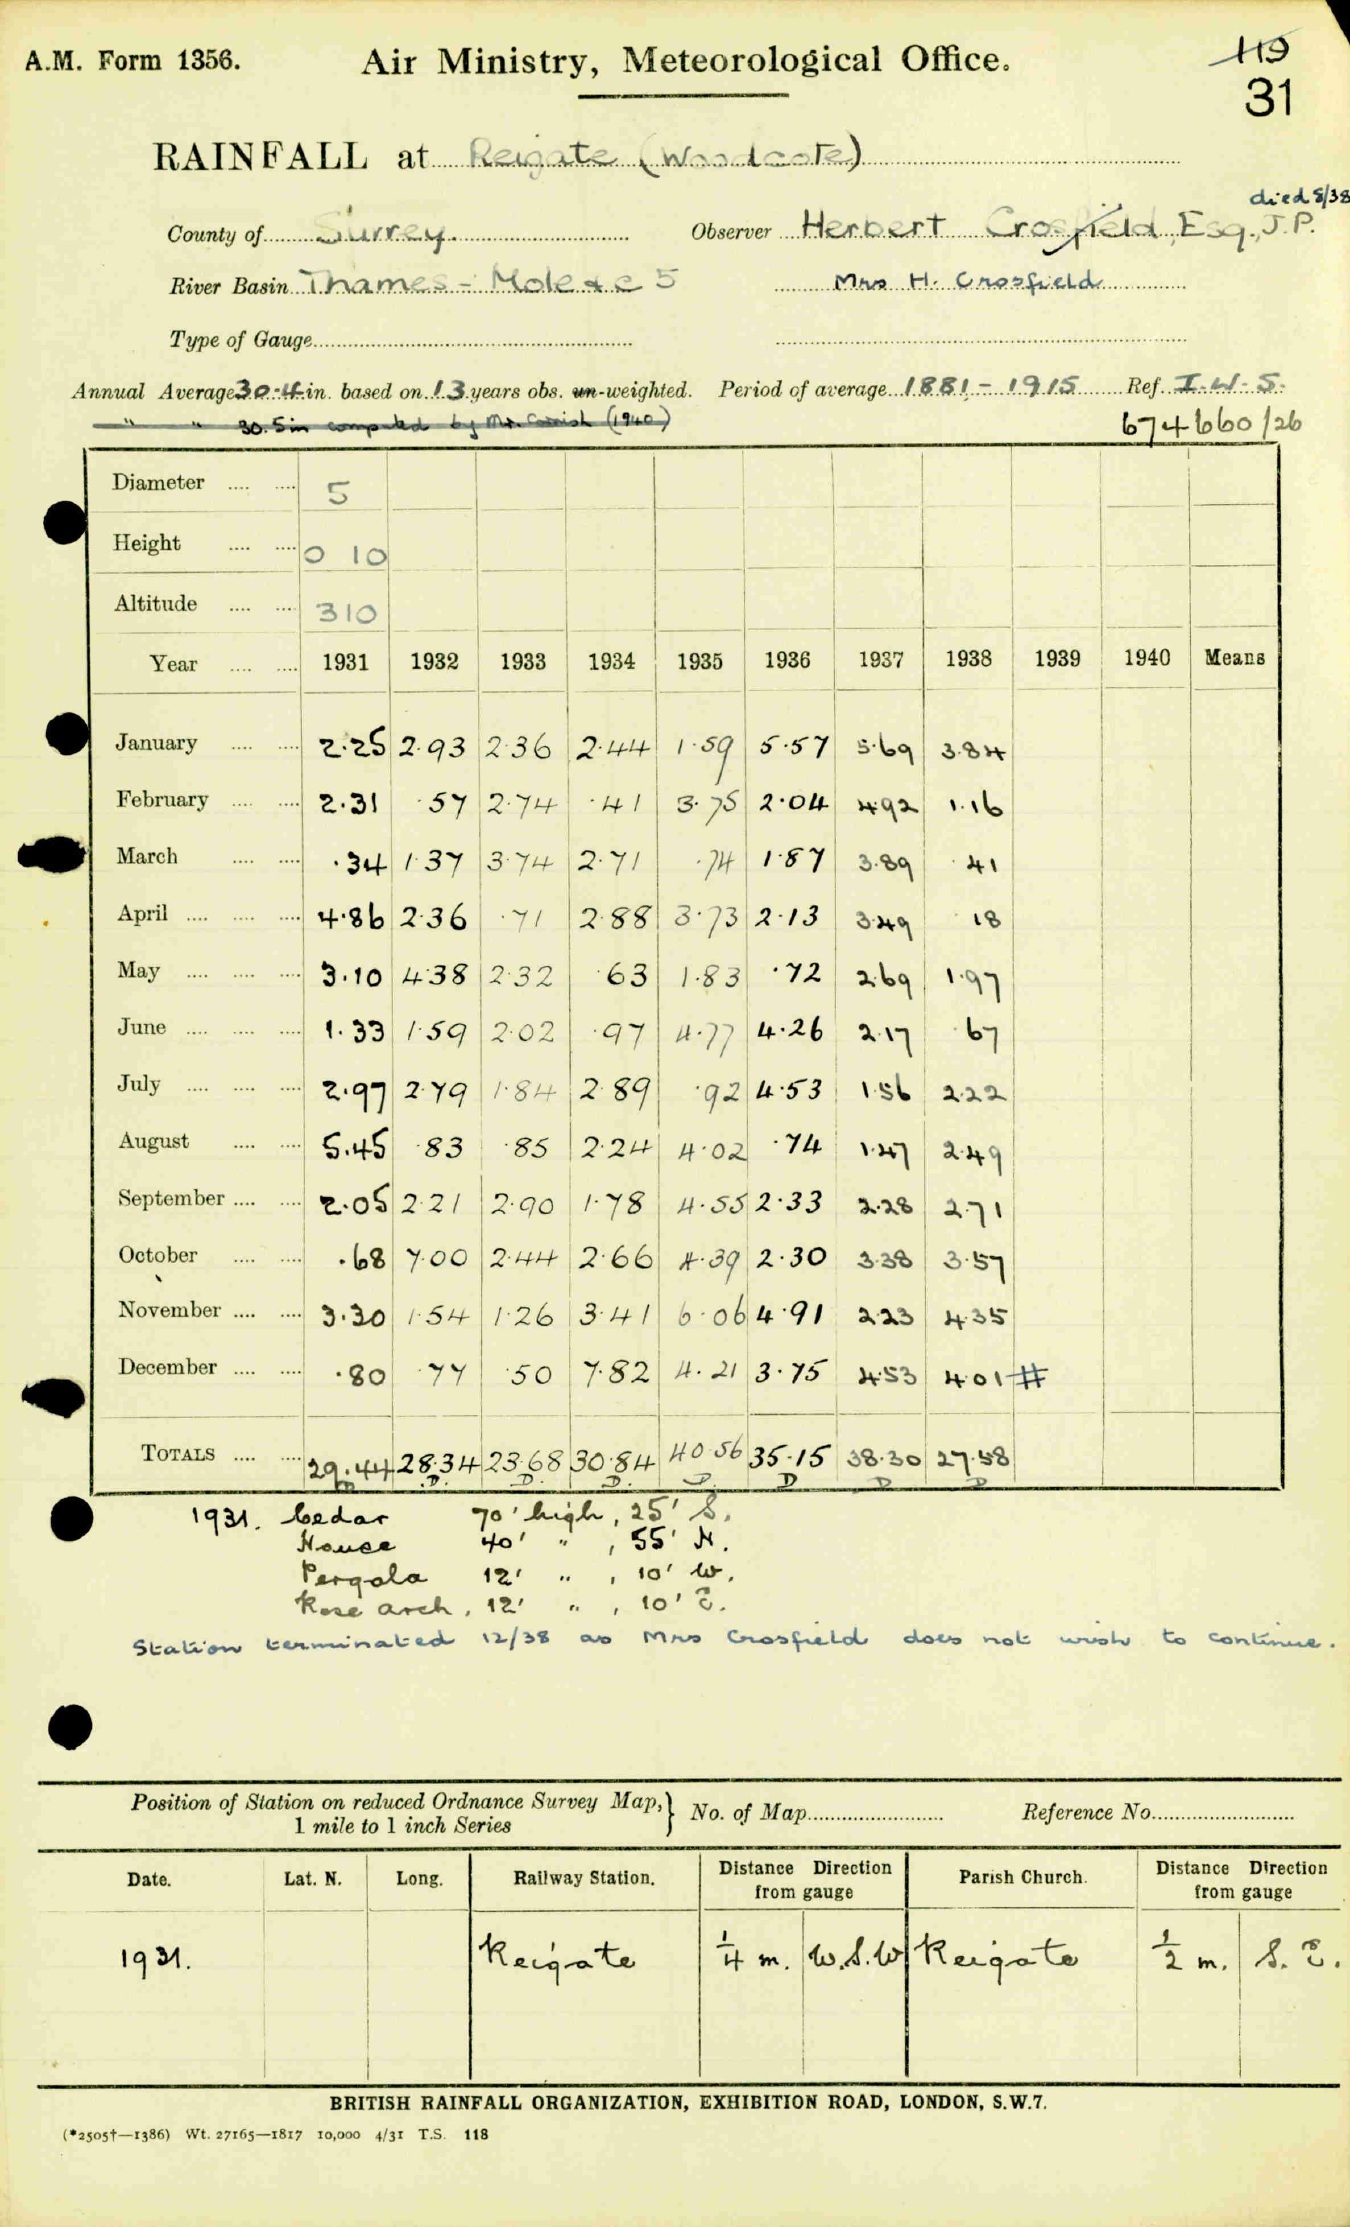 A.M. Form 1356. Air Ministry, Meteorological Office. 119
31
RAINFALL at Reigate (Woodcote)
died 8/38
County of Surrey. Observer Herbert Crosfield, Esq., J.P.
River Basin Thames - Mole &c 5 Mrs H. Crosfield
Type of Gauge
Annual Average 30.4 in. based on 13 years obs. un-weighted. Period of average 1881 - 1915 Ref. I.W.S.
" " 30.5in computed by Mr. (1940) 674660/26
Diameter .... .... 5
Height .... .... 0 10
Altitude .... .... 310
Year .... .... 1931 1932 1933 1934 1935 1936 1937 1938 1939 1940 Means
January .... .... 2.25 2.93 2.36 2.44 1.59 5.57 5.69 3.84
February .... .... 2.31 .57 2.74 .41 3.75 2.04 4.92 1.16
March .... .... .34 1.37 3.74 2.71 .74 1.87 3.89 .41
April .... .... .... 4.86 2.36 .71 2.88 3.73 2.13 3.49 .18
May .... .... .... 3.10 4.38 2.32 .63 1.83 .72 2.69 1.97
June .... .... .... 1.33 1.59 2.02 .97 4.77 4.26 2.17 .67
July .... .... .... 2.97 2.79 1.84 2.89 .92 4.53 1.56 2.22
August .... .... 5.45 .83 .85 2.24 4.02 .74 1.47 2.49
September .... .... 2.05 2.21 2.90 1.78 4.55 2.33 2.28 2.71
October .... .... .68 7.00 2.44 2.66 4.39 2.30 3.38 3.57
November .... .... 3.30 1.54 1.26 3.41 6.06 4.91 2.23 4.35
December .... .... .80 .77 .50 7.82 4.21 3.75 4.53 4.01 #
TOTALS .... .... 29.44 28.34 23.68 30.84 40.56 35.15 38.30 27.58
D. D. D. D. D D D
1931. Cedar 70' high, 25' S.
House 40' " , 55' N.
Pergola 12' " , 10' W.
Rose arch, 12' " , 10' E.
Station terminated 12/38 as Mrs Crosfield does not wish to continue.
Position of Station on reduced Ordnance Survey Map, } No. of Map Reference No.
1 mile to 1 inch Series
Date. Lat. N. Long. Railway Station. Distance Direction from gauge Parish Church. Distance Direction from gauge
1931. Reigate 1/4 m. W.S.W Reigate 1/2 m. S. E.
BRITISH RAINFALL ORGANIZATION, EXHIBITION ROAD, LONDON, S.W.7.
(*2505†—1386) Wt. 27165—1817 10,000 4/31 T.S. 118